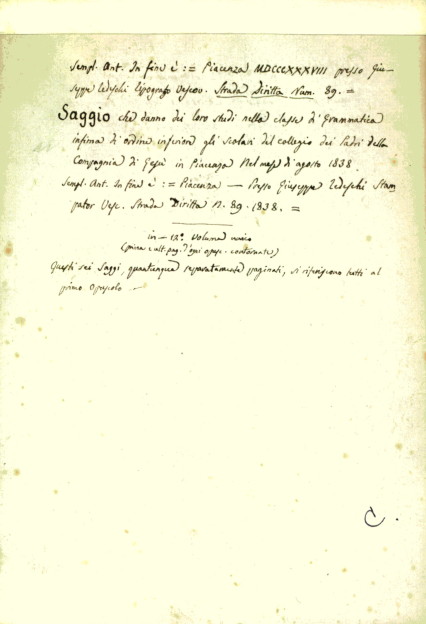 Sempl. Ant. In fine è := Piacenza MDCCCXXXVIII presso Giu-
seppe Tedeschi Tipografo Vescov. Strada Diritta Num. 89. =
Saggio che danno dei loro studi nella classe di Grammatica
infima di ordine inferiore gli Scolari del collegio dei Padri della
Compagnia di Gesù in Piacenza Nel mese d'agosto 1838
Sempl. Ant. In fine è := Piacenza — Presso Giuseppe Tedeschi Stam
pator Vesc. Strada Diritta N. 89. 1838. =
in - 12.º Volume unico
(prima e ult. pag. d'ogni opusc. contornate)
Questi sei Saggi, quantunque separatamente paginati, si riferiscono tutti al
primo opuscolo —
C.